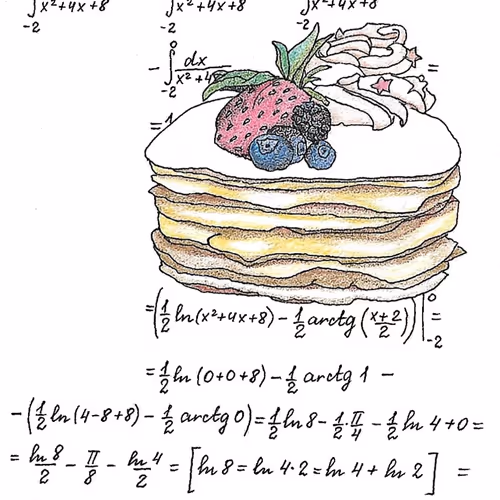 ∫₋₂ x²+4x+8 ∫₋₂ x²+4x+8 ∫₋₂ x²+4x+8
- ∫₋₂⁰ dx/(x²+4 =
=1
=(1/2 ln(x²+4x+8) - 1/2 arctg((x+2)/2))|₋₂⁰ =
= 1/2 ln(0+0+8) - 1/2 arctg 1 -
-(1/2 ln(4-8+8) - 1/2 arctg 0) = 1/2 ln 8 - 1/2·π/4 - 1/2 ln 4 + 0 =
= ln 8/2 - π/8 - ln 4/2 = [ln 8 = ln 4·2 = ln 4 + ln 2] =